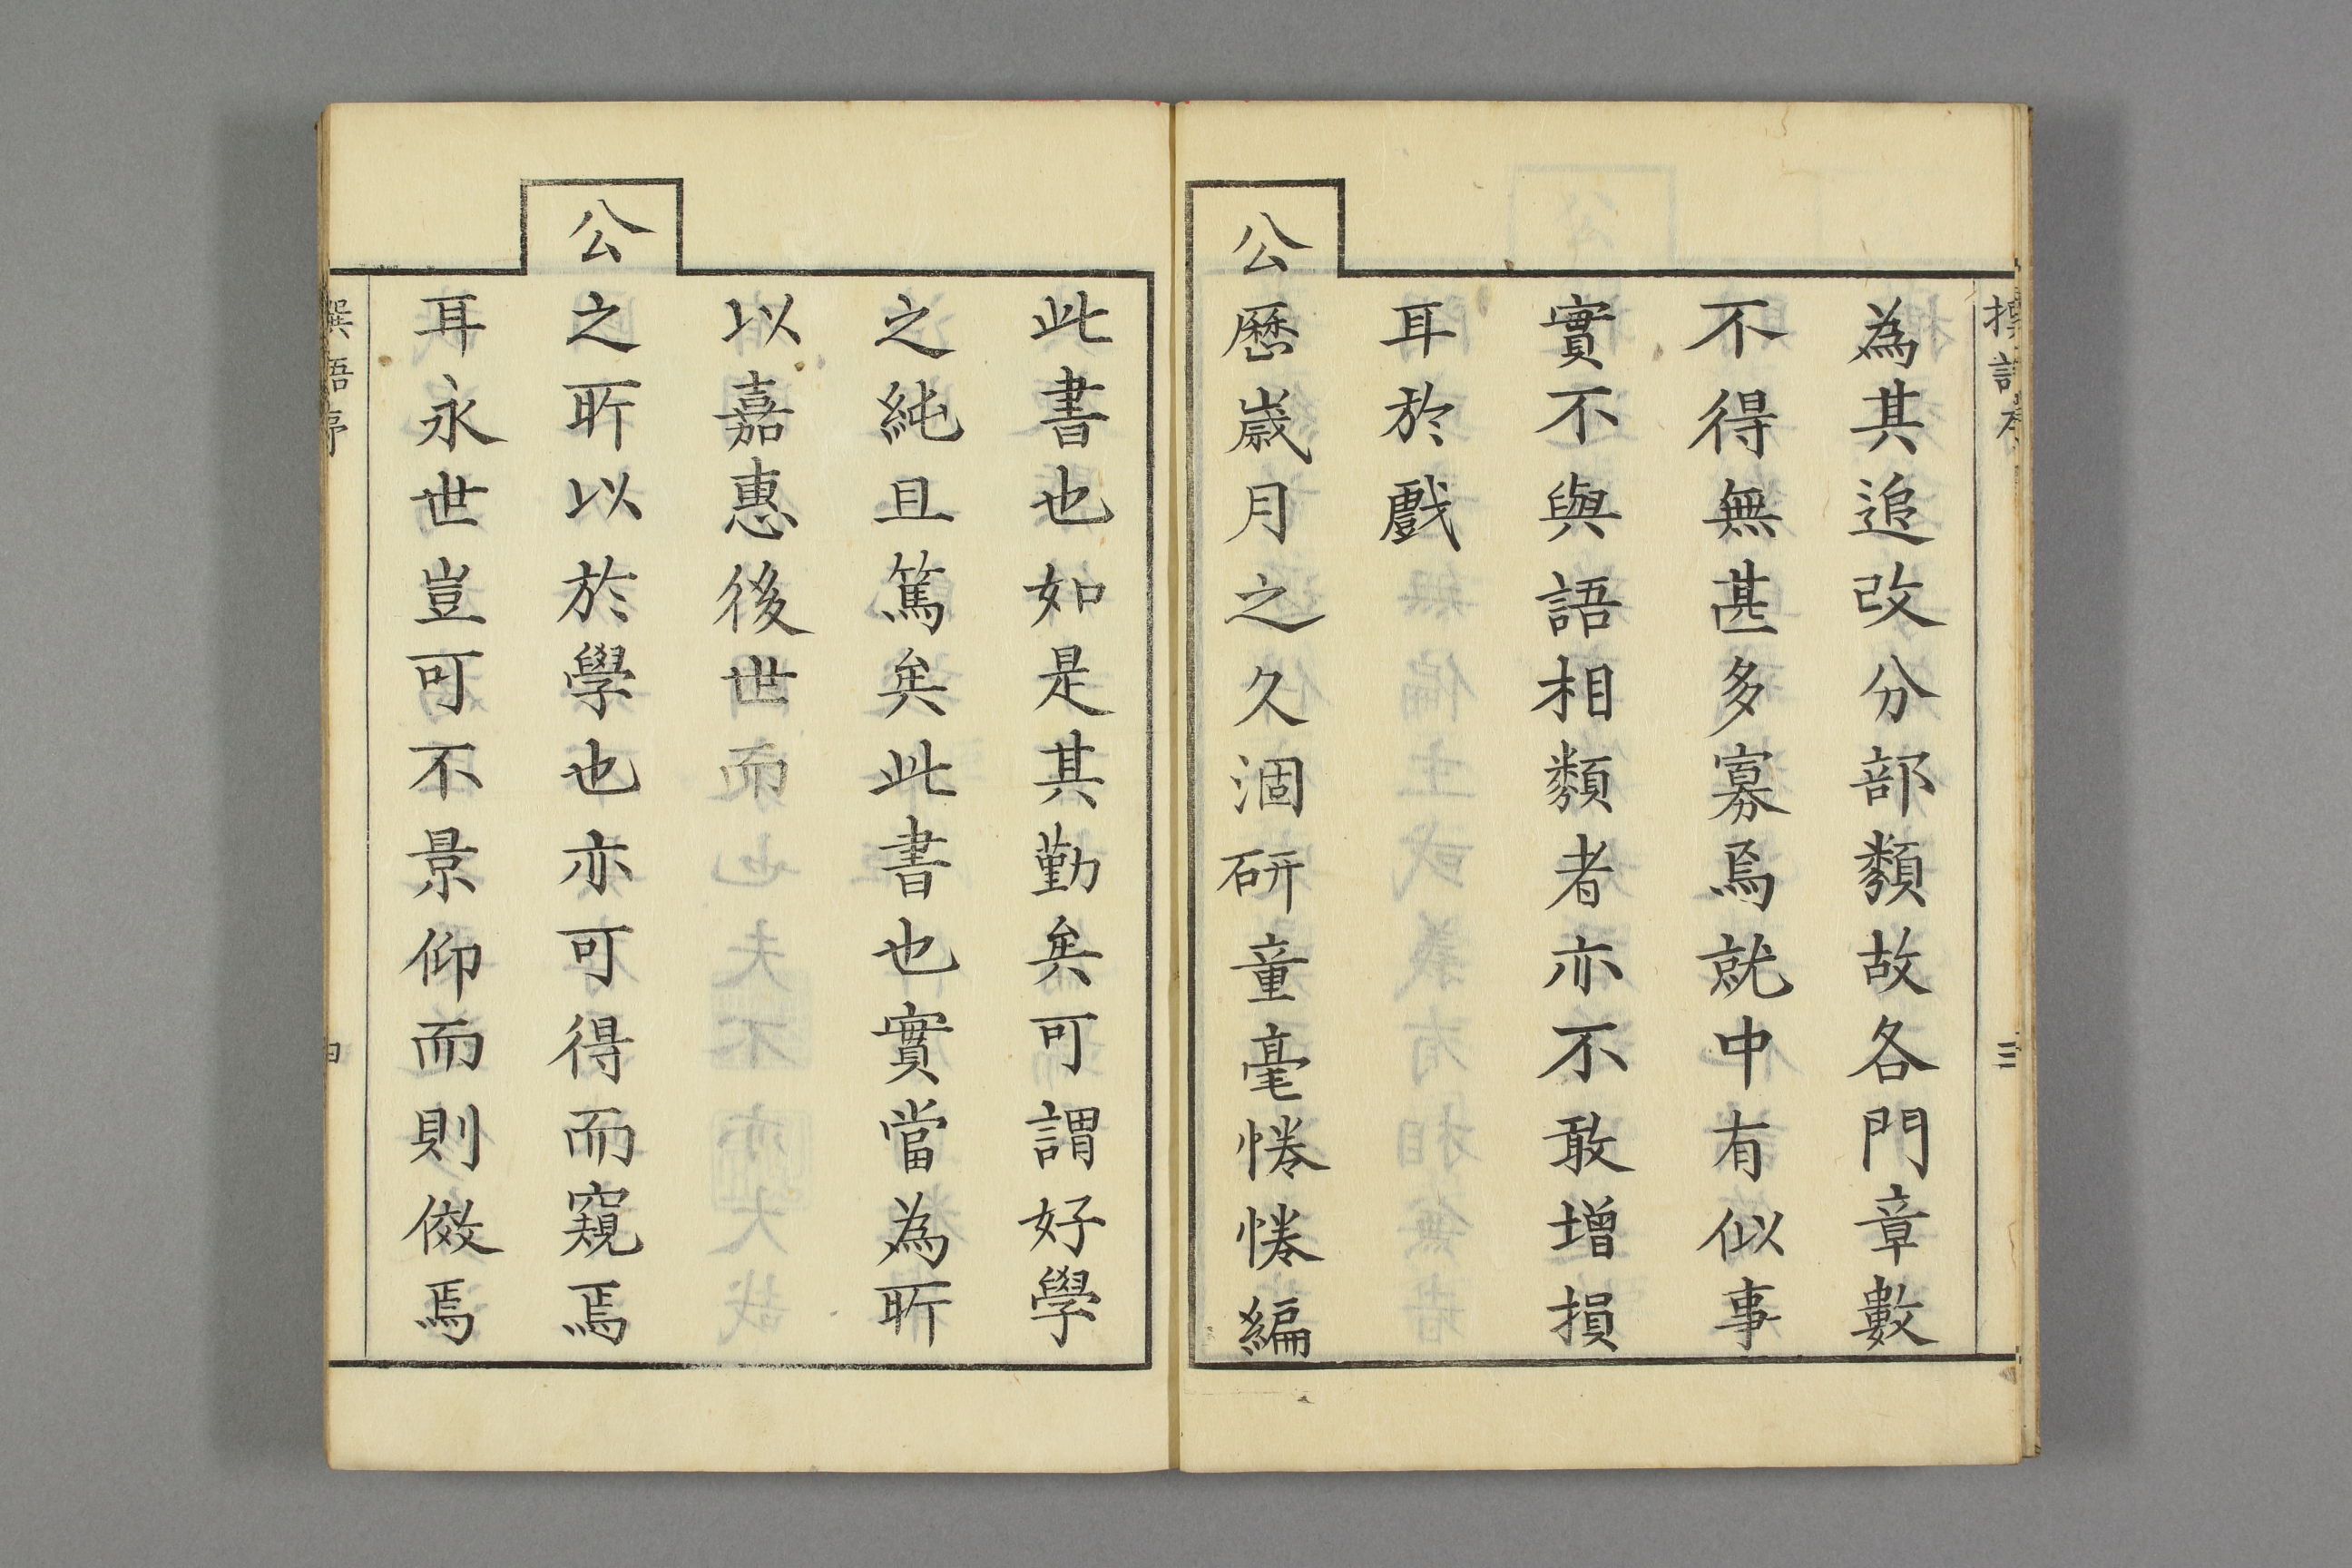 為其追改分部類故各門章數
不得無甚多寡焉就中有似事
實不與語相類者亦不敢增損
耳於戲
公歷歳月之久涸研童毫惓惓編
此書也如是其勤矣可謂好學
之純且篤矣此書也實當為所
以嘉惠後世而
公之所以於學也亦可得而窺焉
耳永世豈可不景仰而則傚焉